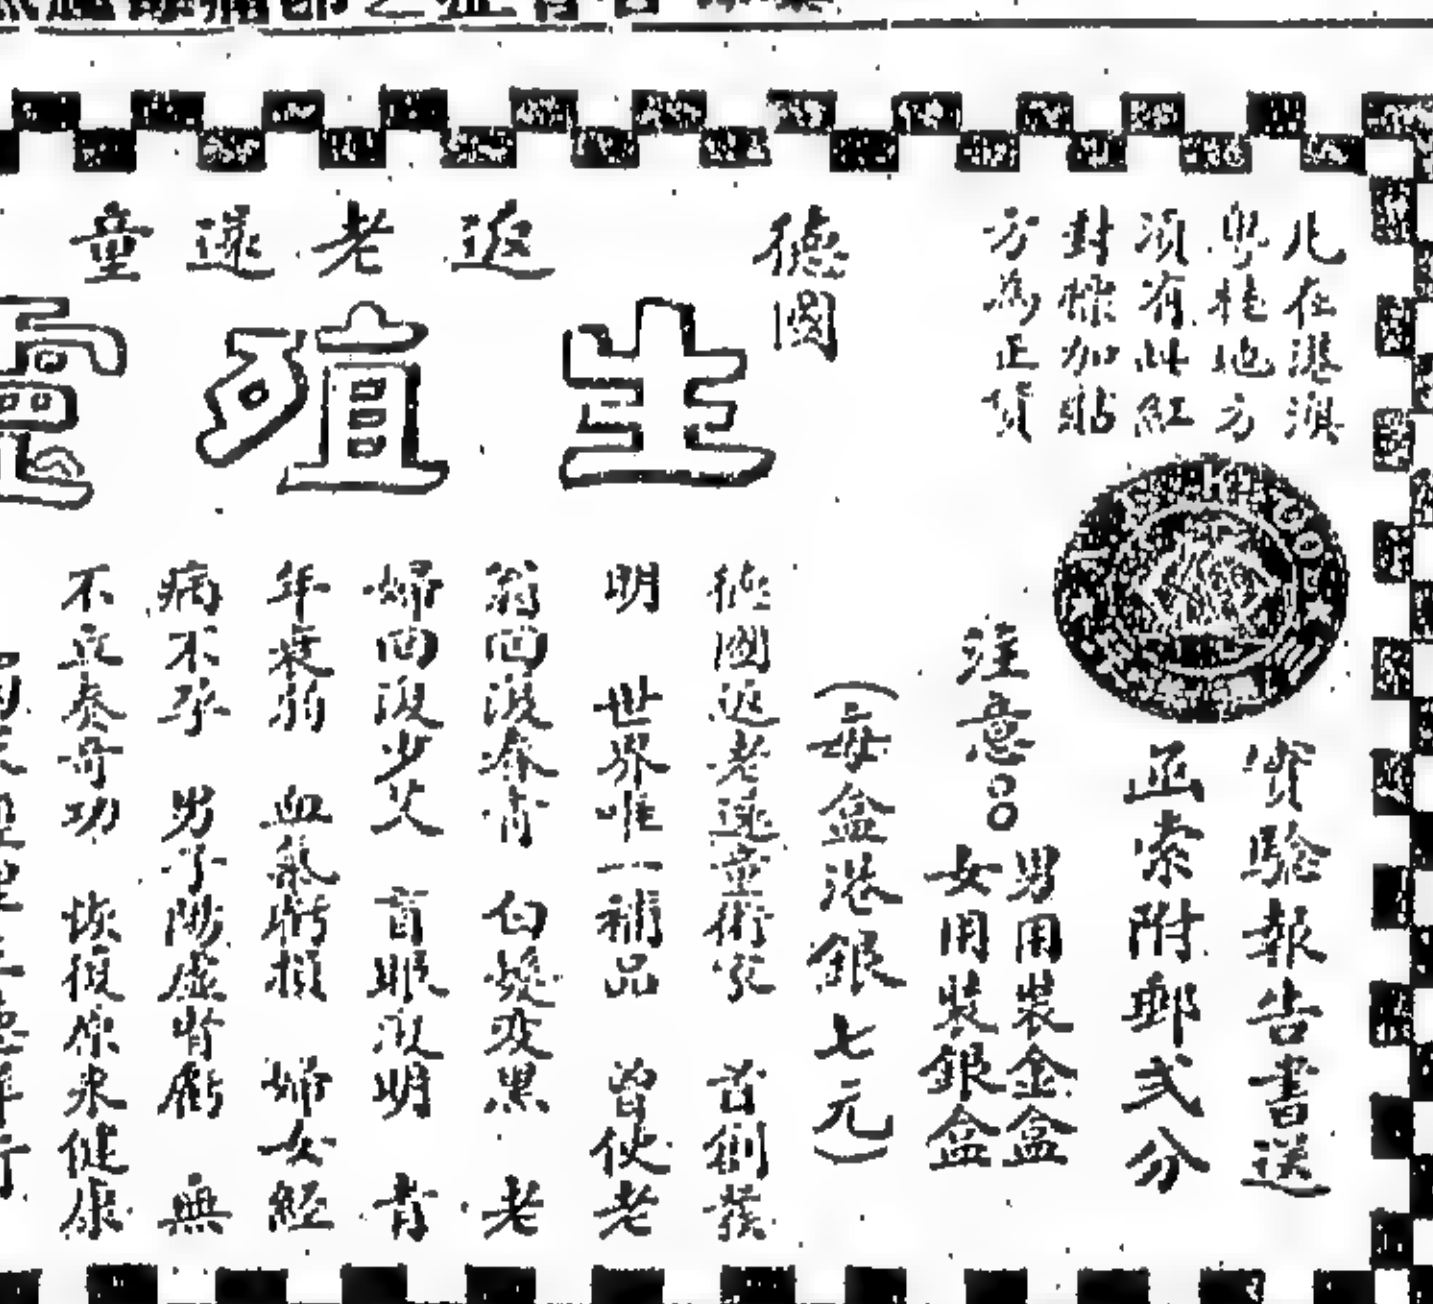 凡在港滇
粵桂地方
須有此紅
對條加貼
方為正貨
寶驗報告書送
函索附郵弍分
注意
男用裝金盒
女用裝銀盒
德國
返老還童
生殖靈
(每盒港銀七元)
德國返老還童術家 首創發
明 世界唯一補品 曾使老
翁回復春青 白髮変黑 老
婦回復少艾 盲眼復明 青
年衰弱 血氣虧損 婦女經
病不孕 男子陽虛腎虧 無
不立奏奇功 恢復你永健康